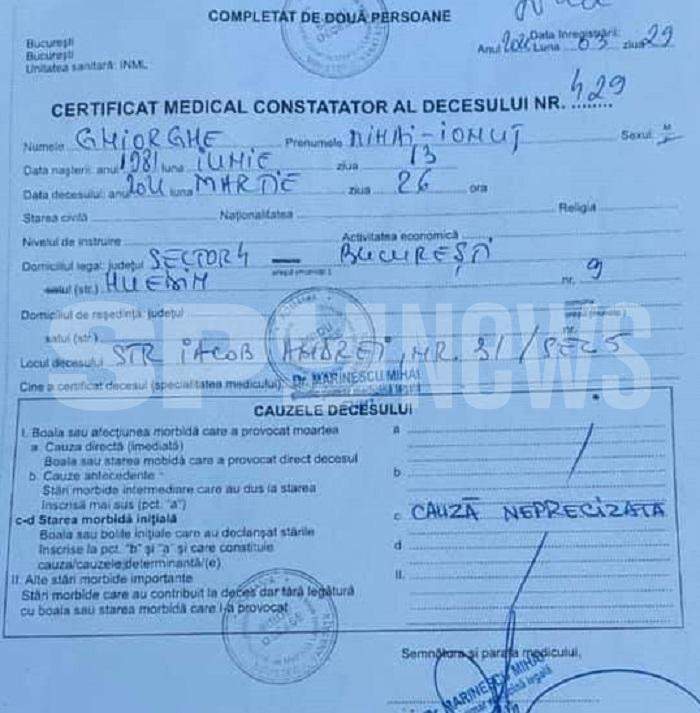 COMPLETAT DE DOUĂ PERSOANE
București
București
Unitatea sanitară: INML
Data înregistrării:
Anul 2021 Luna 03 ziua 29
CERTIFICAT MEDICAL CONSTATATOR AL DECESULUI NR. 429
Numele GHIORGHE Prenumele MIHAI-IONUȚ Sexul M
Data nașterii: anul 1981 luna IUNIE ziua 13
Data decesului: anul 2021 luna MARTIE ziua 26 ora
Starea civilă Naționalitatea Religia
Nivelul de instruire Activitatea economică
Domiciliul legal: județul SECTOR 4 BUCUREȘTI
satul (str.) HUEDIN nr. 9
Domiciliul de reședință: județul
satul (str) nr.
SPUNEWS
Locul decesului STR IACOB ANDREI, NR. 31/SEC 5
Cine a certificat decesul (specialitatea medicului) Dr. MARINESCU MIHAI
CAUZELE DECESULUI
I. Boala sau afecțiunea morbidă care a provocat moartea a
a Cauza directă (imediată)
Boala sau starea mobidă care a provocat direct decesul
b. Cauze antecedente b
Stări morbide intermediare care au dus la starea
înscrisă mai sus (pct. "a")
c-d Starea morbidă inițială c CAUZĂ NEPRECIZATĂ
Boala sau bolile inițiale care au declanșat stările
înscrise la pct. "b" și "a" și care constituie d
cauza/cauzele determinantă/(e)
II. Alte stări morbide importante II.
Stări morbide care au contribuit la deces dar fără legătură
cu boala sau starea morbidă care l-a provocat
Semnătura și parafa medicului,
Dr. MARINESCU MIHAI